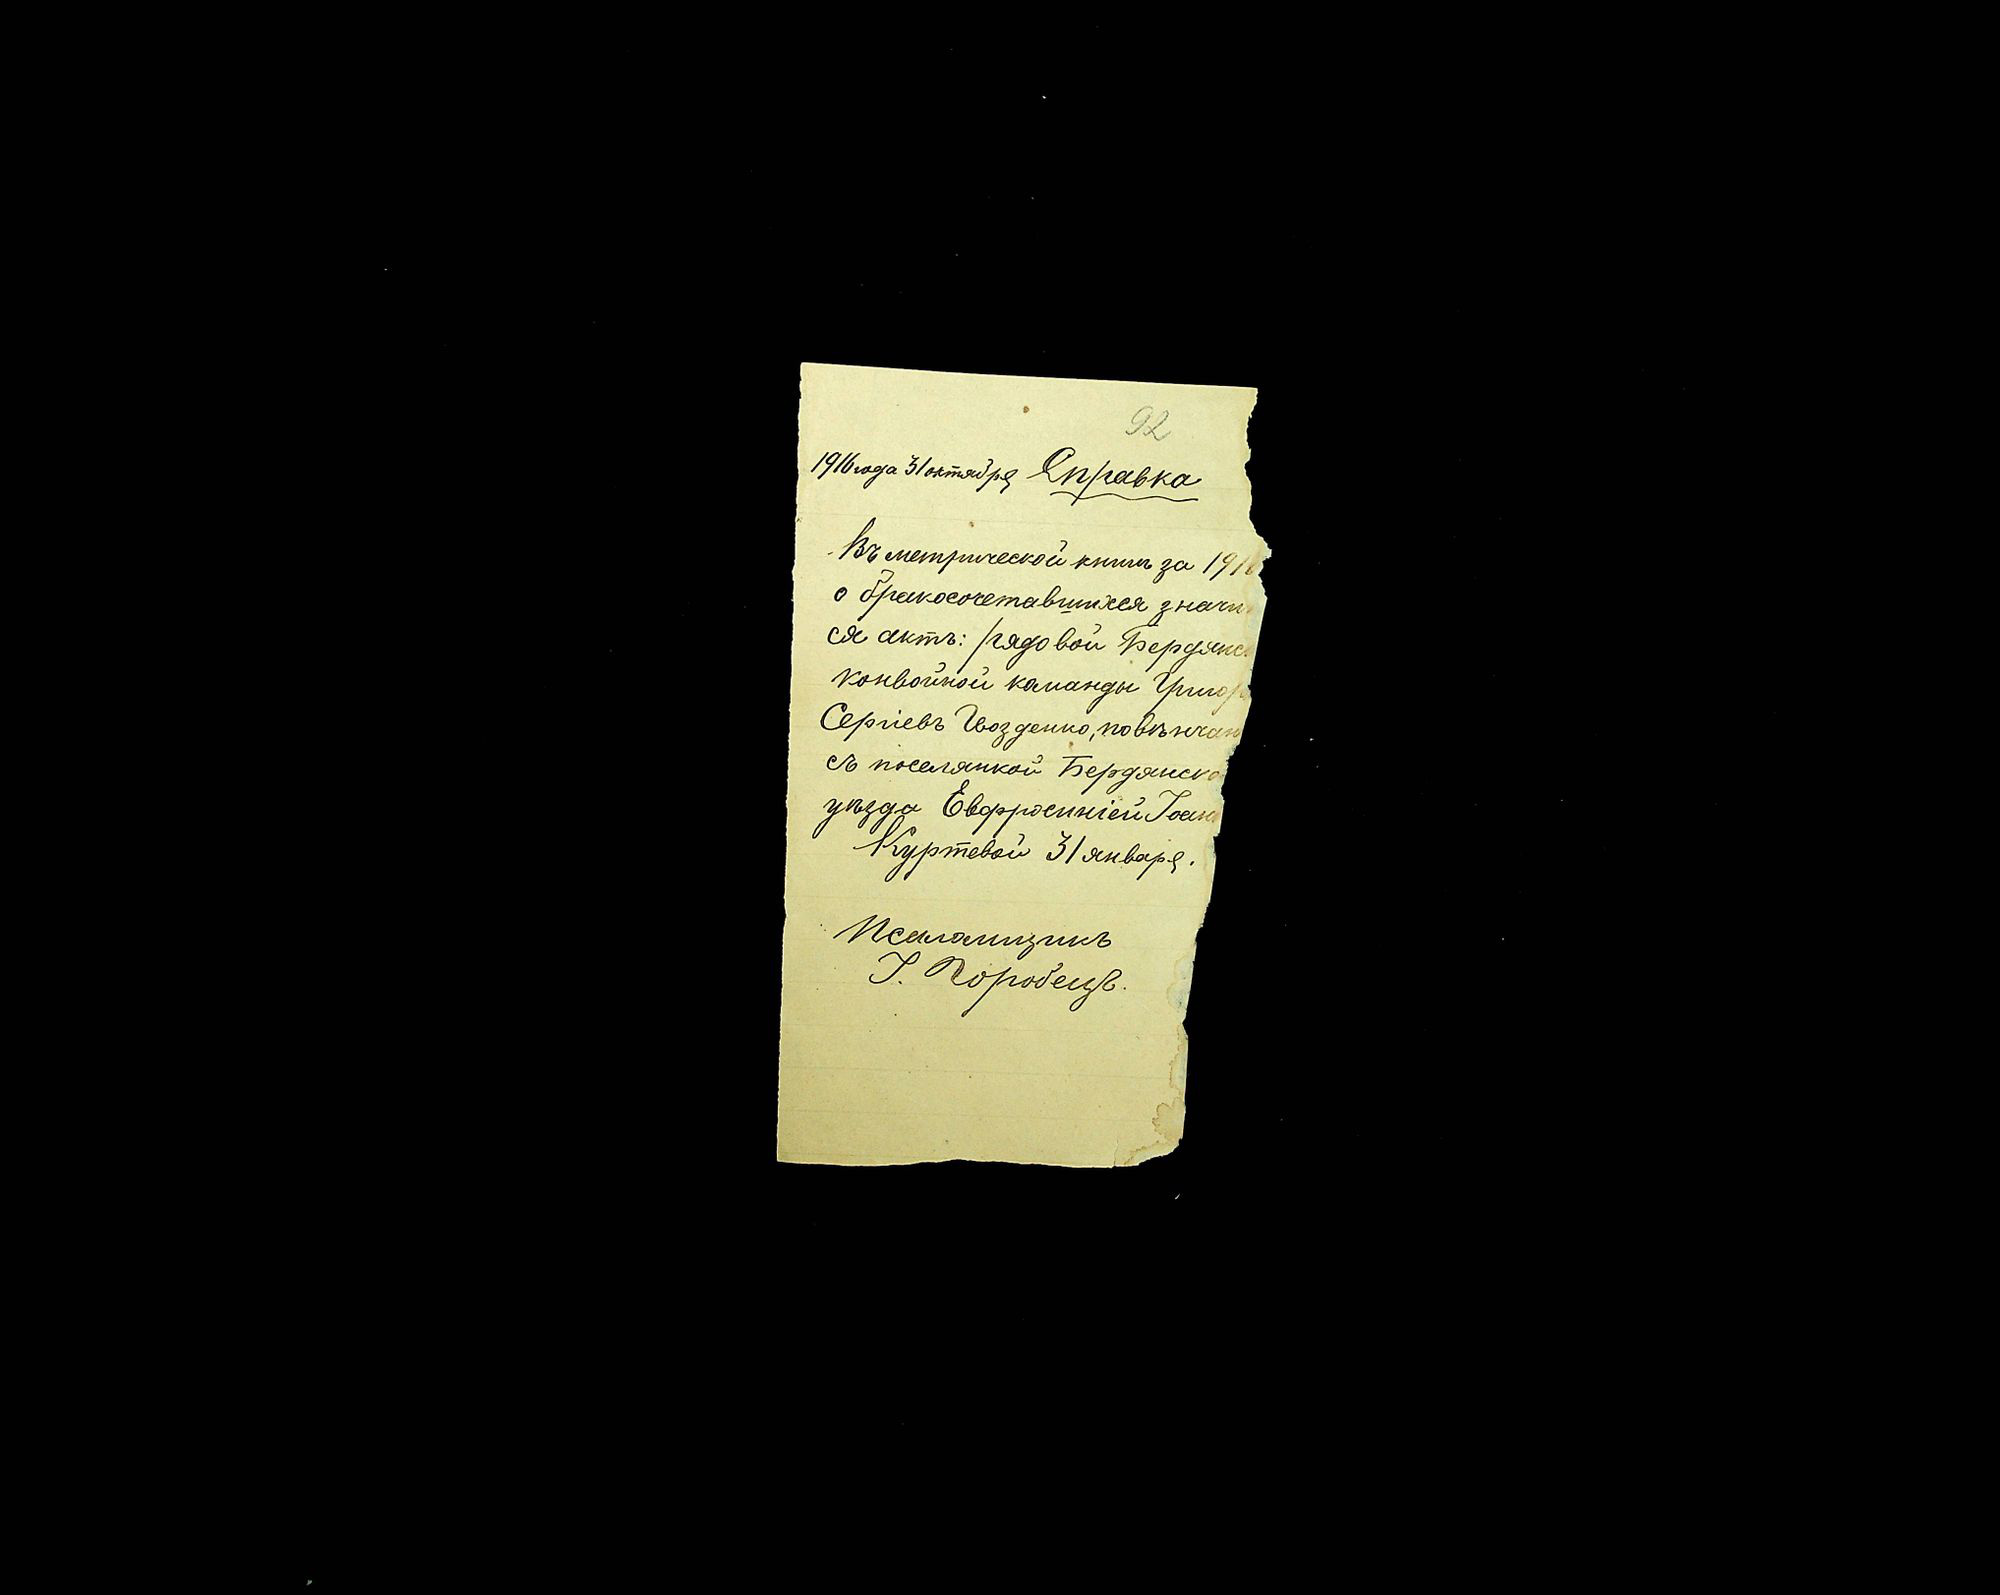 92
1916 года 31 октября Справка
Въ метрической книгѣ за 1916
о бракосочетавшихся значи
ся актъ: рядовой Бердянск
конвойной команды Григор
Сергіевъ Гвозденко, повѣнчан
съ поселянкой Бердянско
уѣзда Евфросиніей Іоан
Куртевой 31 января.
Псаломщикъ
І. Коробецъ.